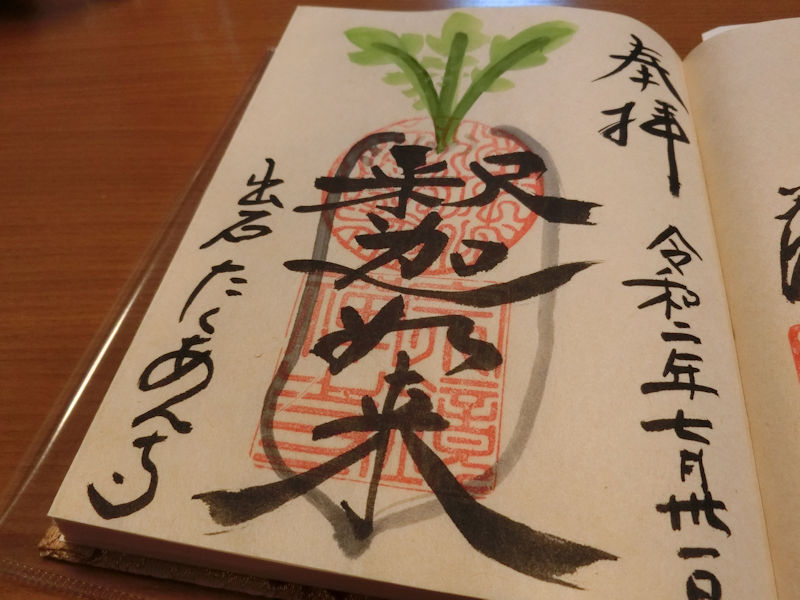 奉拝
令和二年七月卅一日
釈迦如来
出石たくあん寺